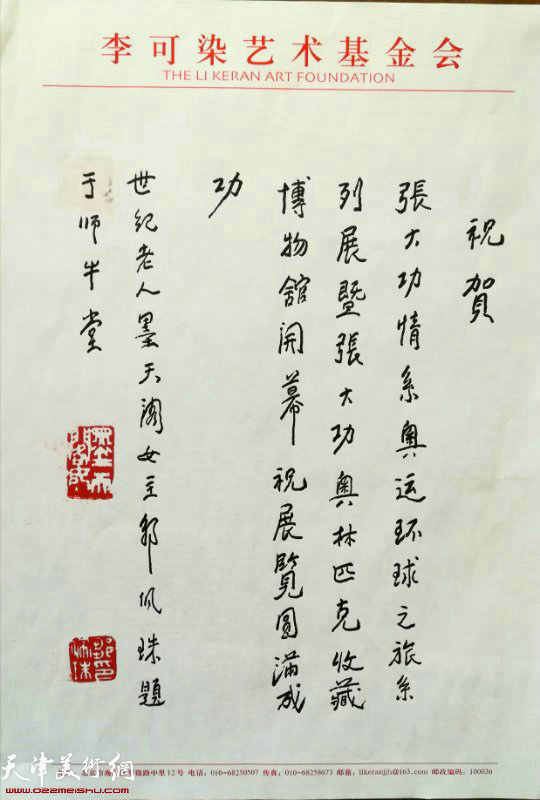 李可染艺术基金会
THE LI KERAN ART FOUNDATION
祝賀
張大功情系奥运环球之旅系
列展暨張大功奥林匹克收藏
博物館開幕祝展覽圆滿成
功
世纪老人墨天阁女主邹佩珠題
于师牛堂
路中里12号 电话：010-68250507 传真：010-68258673 邮箱：likeranjjh@163.com 邮政编码：100036
天津美術網
www.022meishu.com